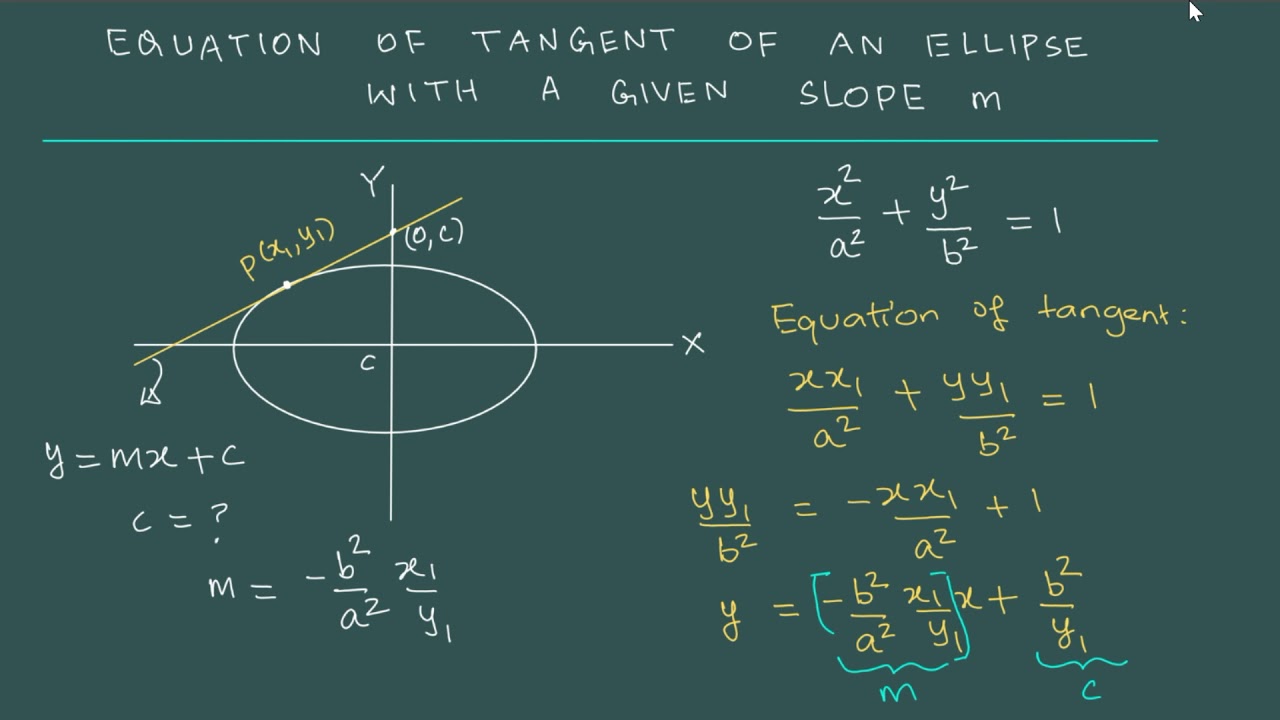 EQUATION OF TANGENT OF AN ELLIPSE
WITH A GIVEN SLOPE m
Y
P(x₁,y₁)
(0,c)
X
C
y = mx + c
c = ?
m = -b²/a² x₁/y₁
x²/a² + y²/b² = 1
Equation of tangent:
xx₁/a² + yy₁/b² = 1
yy₁/b² = -xx₁/a² + 1
y = [-b²/a² x₁/y₁]x + b²/y₁
m c